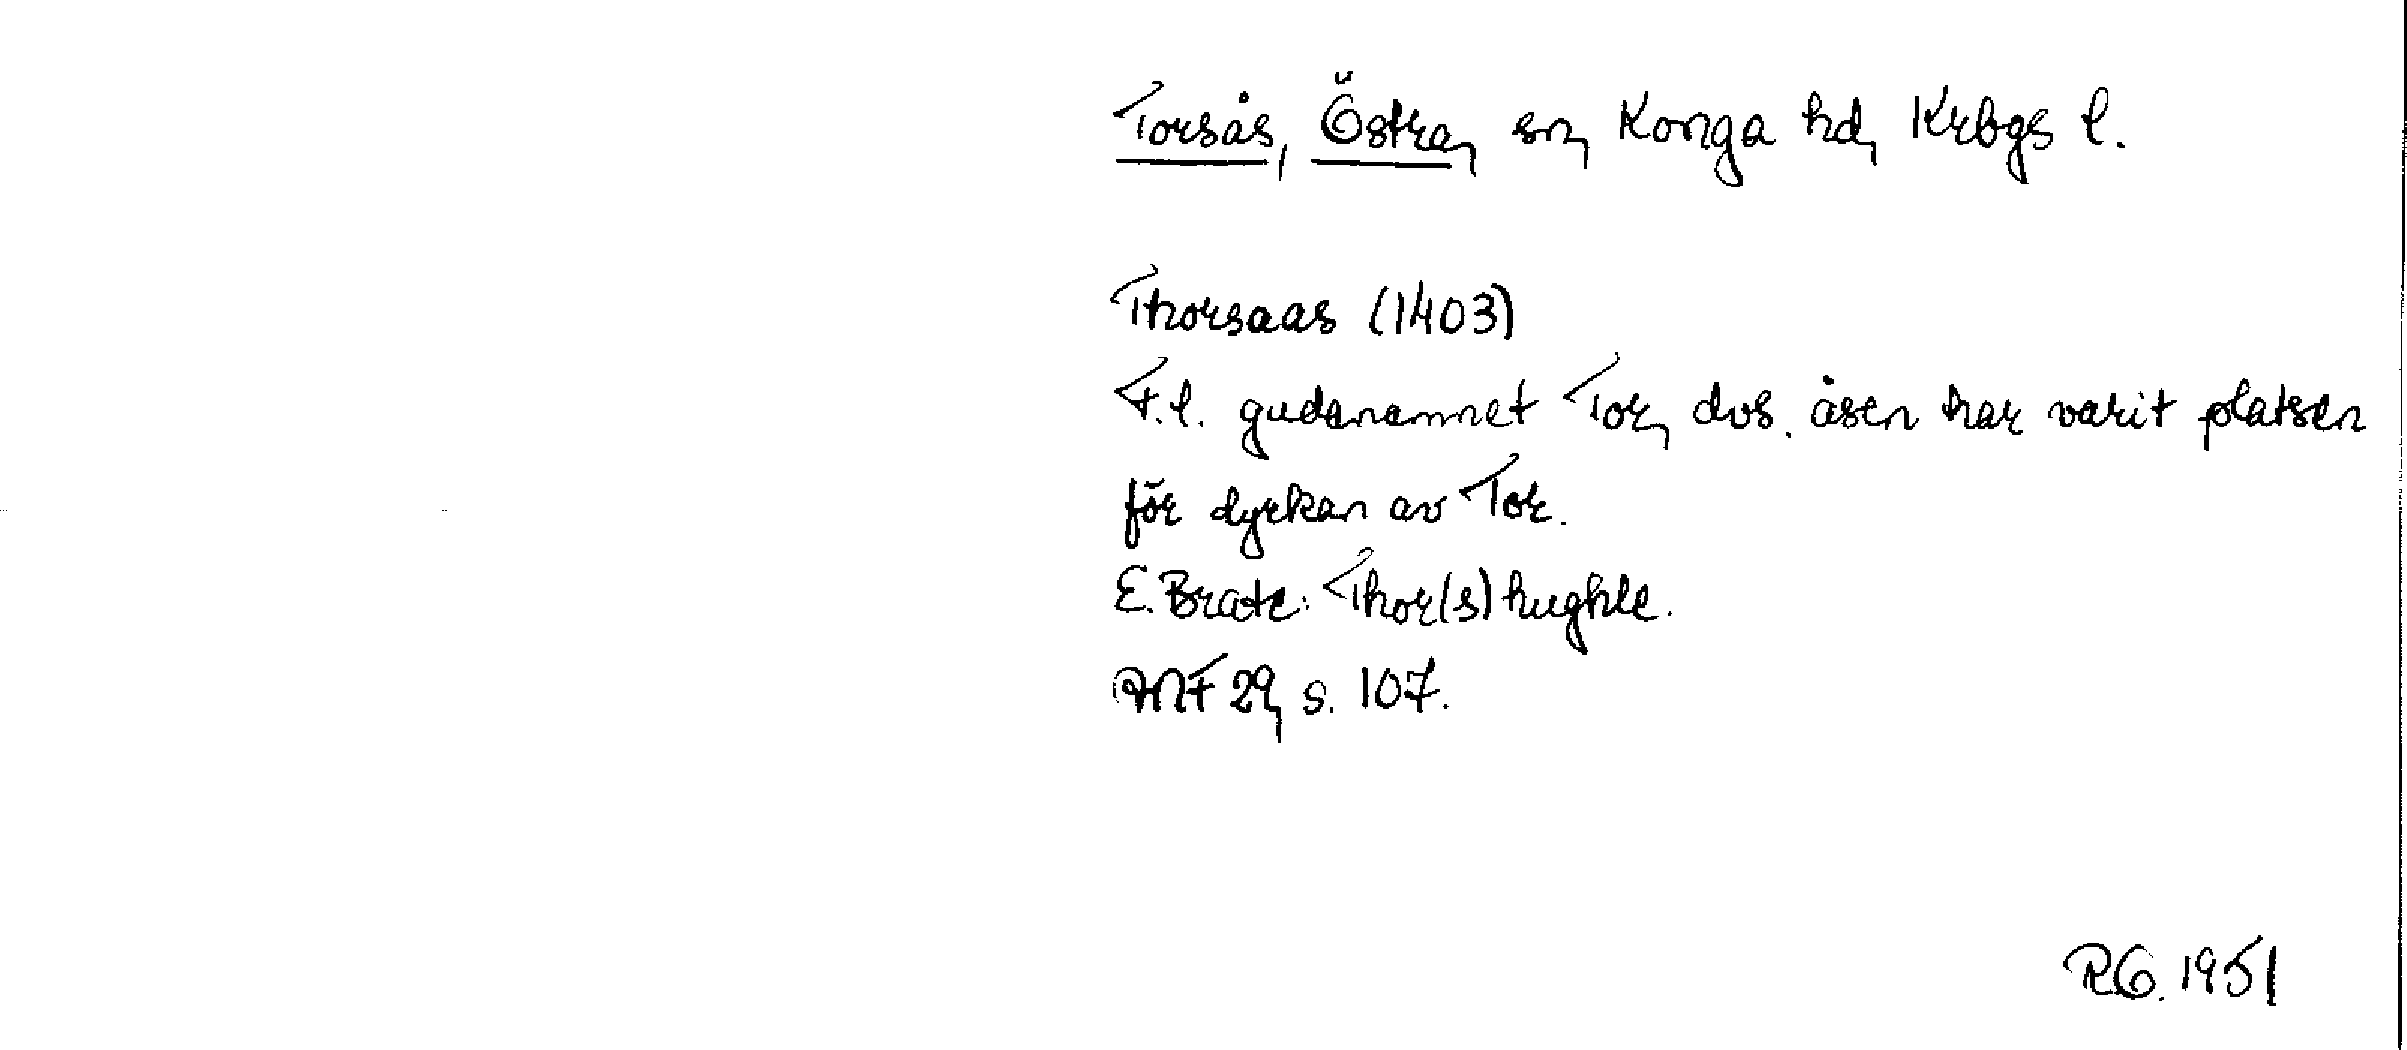 Torsås, Östra, sn, Konga hd, Krbgs l.
Thorsaas (1403)
F.l. gudanamnet Tor, dvs. åsen har varit platsen
för dyrkan av Tor.
E. Brate: Thor(s)hughle.
ANF 29, s. 107.
RG. 1951